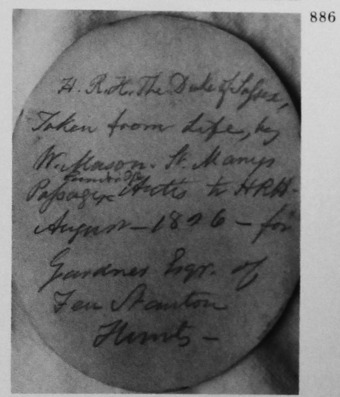 886
H. R. H. The Duke of Sussex,
Taken from Life, by
W. Mason. St. Marys
Cambridge
Passage Artis to HRH-
August - 1826 - for
Gardner Esqr. of
Fen Stanton
Hunts -